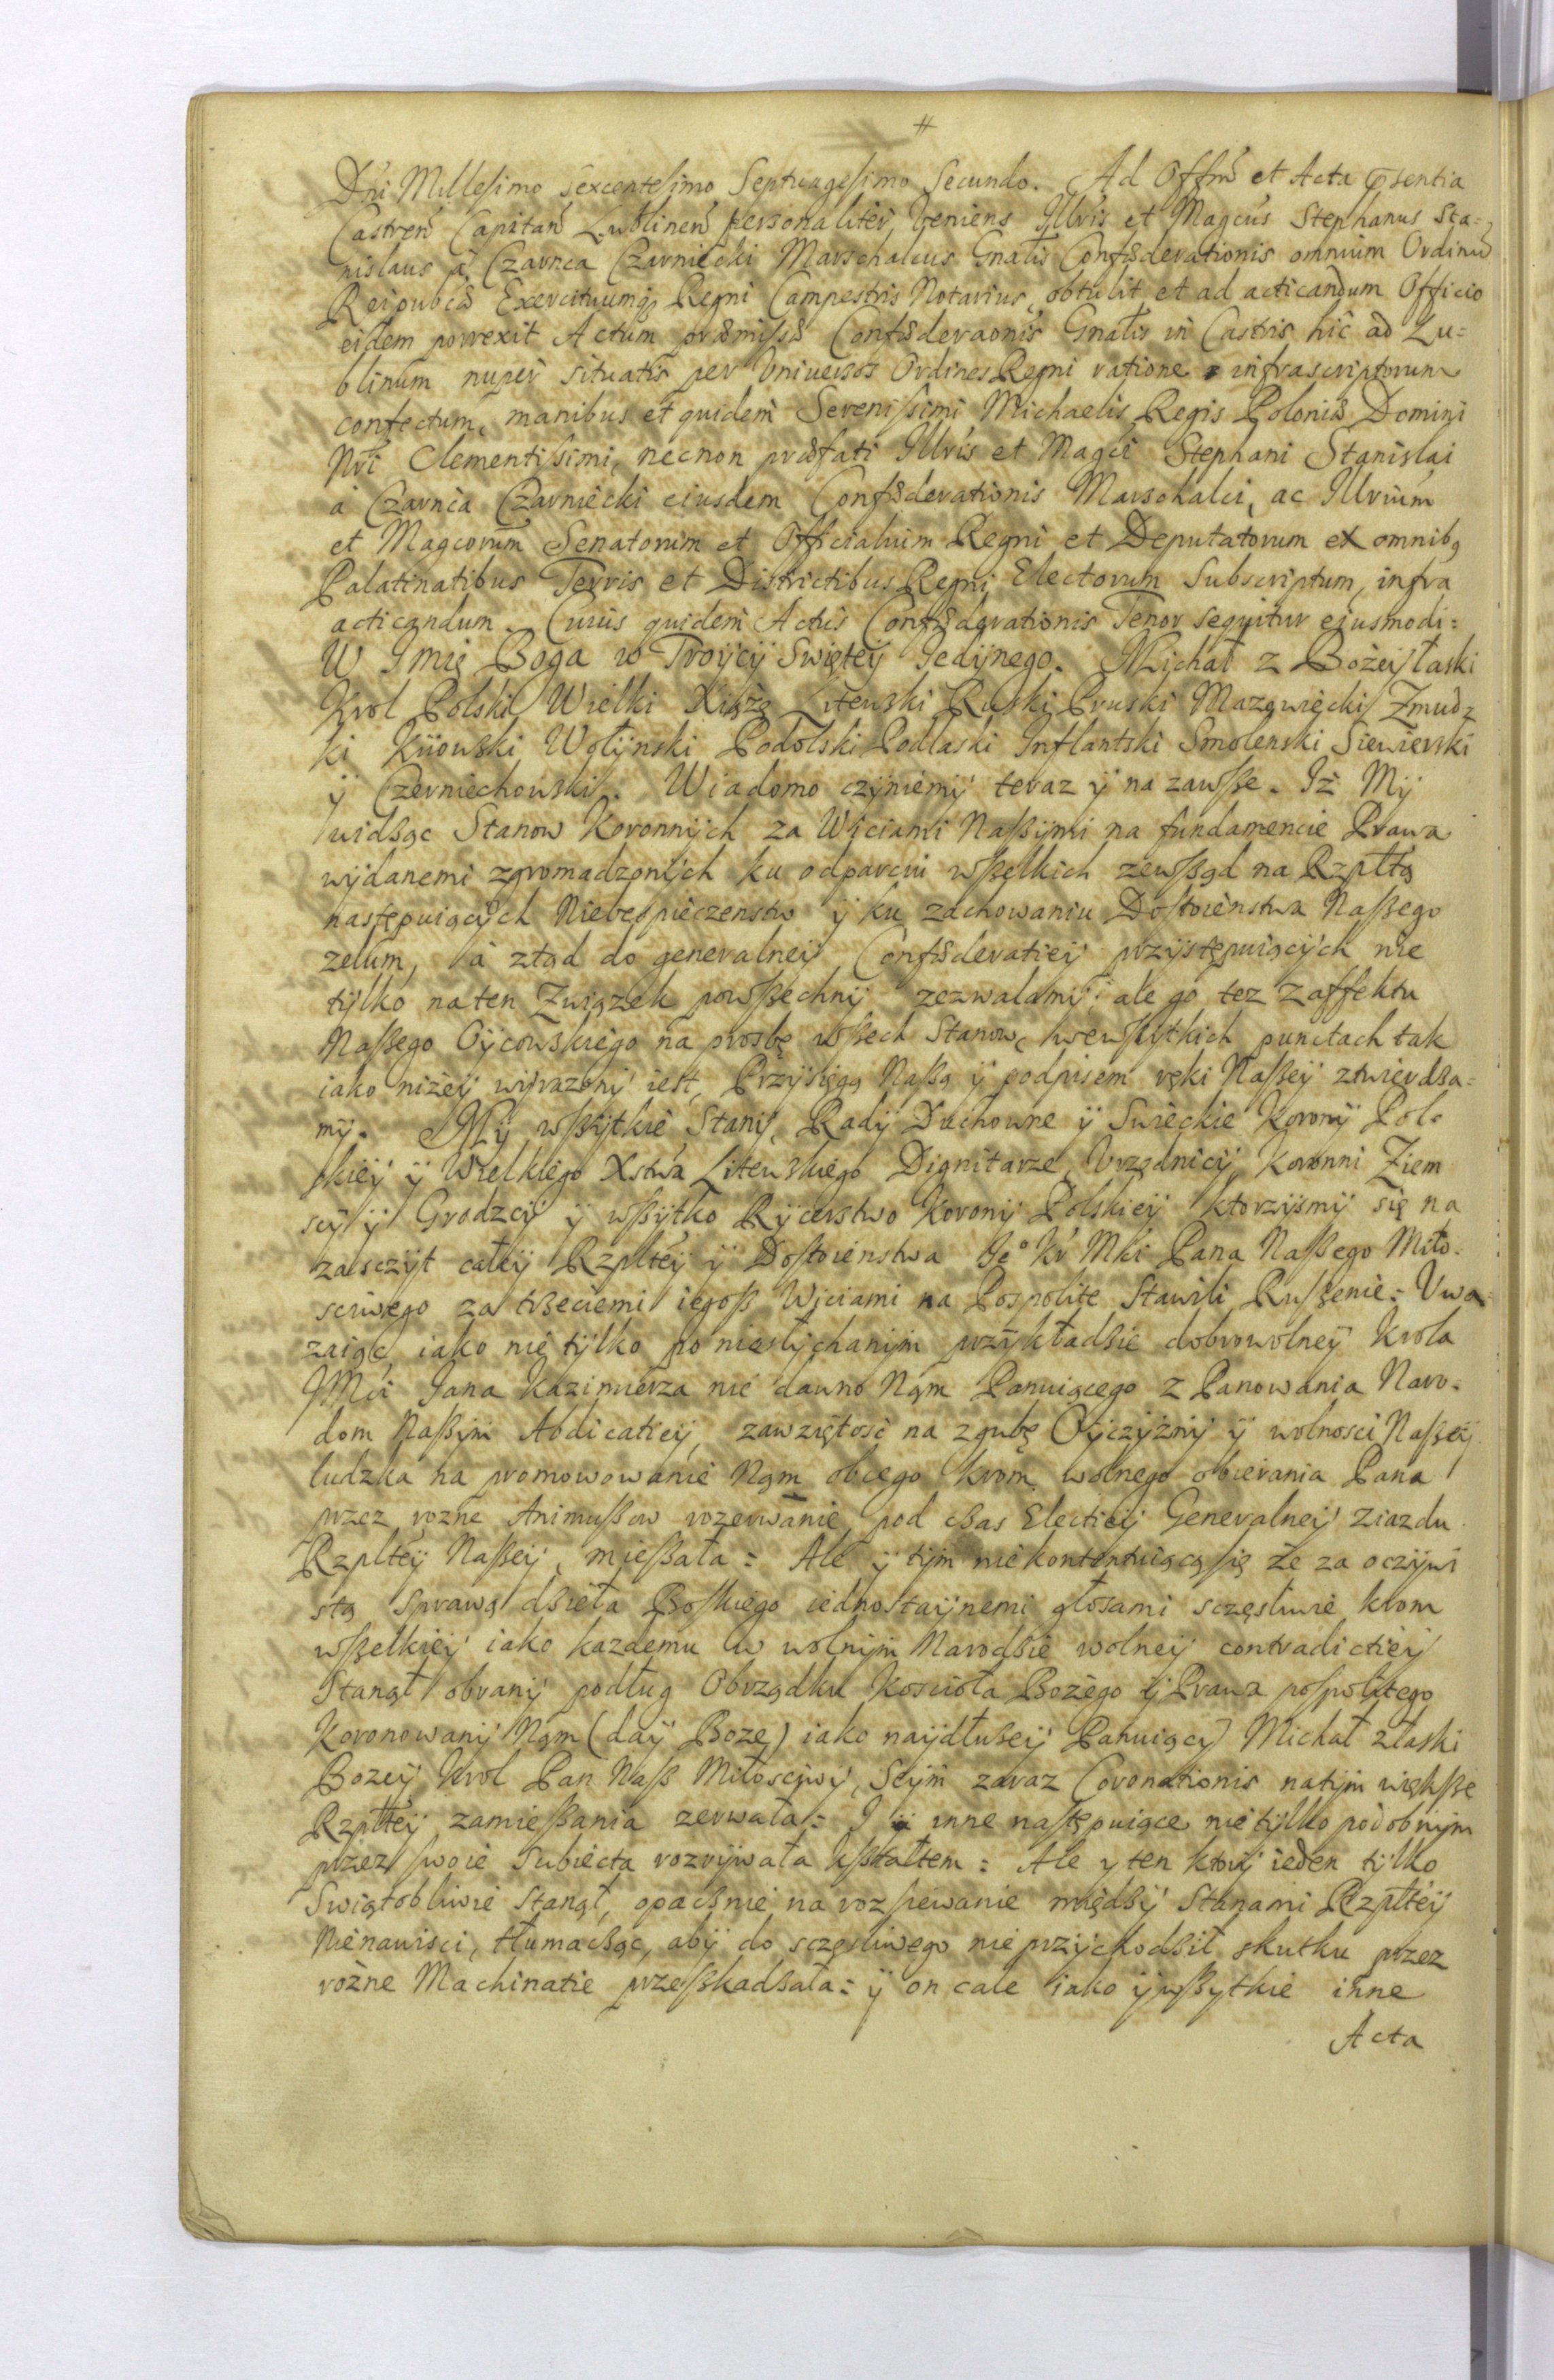 #
Dni Millesimo sexcentesimo Septuagesimo Secundo. Ad Offm et Acta psentia
Castren Capitan Lublinen personaliter veniens Illris et Magcus Stephanus Sta=
nislaus a Czarnca Czarniecki Marschalcus Gnalis Confœderationis omnium Ordinu
Reipublcæ Exercituumq Regni Campestris Notarius, obtulit et ad acticandum Officio
eidem porrexit Actum præmissæ Confœderaonis Gnalis in Castris hic ad Lu=
blinum nuper situatis per Universos Ordines Regni ratione infrascriptorum
confectum, manibus et quidem Serenissimi Michaelis Regis Poloniæ Domini
Nri Clementissimi, necnon præfati Illris et Magci Stephani Stanislai
a Czarnca Czarniecki eiusdem Confœderationis Marschalci, ac Illrium
et Magcorum Senatorum et Officialium Regni et Deputatorum ex omnibq
Palatinatibus Terris et Districtibus Regni Electorum Subscriptum, infra
acticandum. Cuius quidem Actus Confœderationis Tenor sequitur eiusmodi:
W Imię Boga w Troÿcÿ Swiętey Iedÿnego. Michał z Bożeÿ łaski
Krol Polski Wielki Xiąże Litewski Ruski Pruski Mazowiecki Zmudz
ki Kiiowski Wołÿnski Podolski Podlaski Inflantski Smolenski Siewierski
ÿ Czerniechowski. Wiadomo czÿniemÿ teraz ÿ na zawsße. Iż Mÿ
widßąc Stanow Koronnÿch za Wiciami Naßÿmi na fundamencie Prawa
wÿdanemi zgromadzonÿch ku odparciu wßelkich zewßąd na Rzpltą
następuiącÿch Niebespieczenstw ÿ ku zachowaniu Dostoienstwa Naßego
zelum, a ztąd do generalneÿ Confœderatieÿ przÿstępuiącÿch nie
tÿlko na ten Związek powßechnÿ zezwalamÿ, ale go tez z affektu
Naßego Oÿcowskiego na prosbę wßech Stanow, we wßÿtkich punctach tak
iako niżeÿ wÿrazonÿ iest, Przÿsięgą Naßą ÿ podpisem ręki Naßeÿ ztwierdßa=
mÿ. Mÿ wßÿtkie Stanÿ, Radÿ Duchowne ÿ Swieckie Koronÿ Pol=
skieÿ ÿ Wielkiego Xstwa Litewskiego Dignitarze, Vrzędnicÿ, Koronni Ziem
scÿ ÿ Grodzcÿ ÿ wßÿtko Rÿcerstwo Koronÿ Polskieÿ ktorzÿsmÿ się na
zasczÿt całeÿ Rzplteÿ ÿ Dostoienstwa Ieº Kr Mći Pana Naßego Miło=
sciwego za trzeciemi iegoß Wiciami na Pospolite Stawili Rußenie: Vwa=
zaiąc, iako nie tÿlko po niesłÿchanÿm przÿkładßie dobrowolneÿ Krola
IMći Iana Kazimierza nie dawno Nąm Panuiącego z Panowania Naro=
dom Naßÿm Abdicatieÿ, zawziętosć na zgubę Oÿczÿznÿ ÿ wolnosci Naßeÿ
ludzka na promowowanie Nąm obcego krom wolnego obierania Pana
przez rozne Animußow rozerwanie pod cßas Electieÿ Generalneÿ Ziazdu
Rzplteÿ Naßeÿ, mießała: Ale ÿ tÿm nie kontentuiącą się że za oczÿwi
stą sprawą dßieła Boskiego iednostaÿnemi głosami sczęsliwie krom
wßelkieÿ iako kazdemu w wolnÿm Narodßie wolneÿ contradictieÿ
Stanął obranÿ podług Obrządku Kosciola Bożego ÿ Prawa pospolitego
Koronowanÿ Nąm (daÿ Boze) iako naÿdłußeÿ Panuiącÿ Michał z łaski
Bozeÿ Krol Pan Naß Miłosciwÿ, Seÿm zaraz Coronationis natÿm więkße
Rzplteÿ zamießania zerwała: I inne następuiące nie tÿlko podobnÿm
przez swoie Subiecta rozrÿwała kßtałtem: Ale y ten ktorÿ ieden tÿlko
Swiątobliwie Stanął, opacßnie na rozsiewanie międßÿ Stanami Rzplteÿ
Nienawisci, tłumacßąc, abÿ do sczęsliwego nie przÿchodßił skutku przez
rożne Machinatie przeßkadßała: ÿ on cale iako ÿ wßytkie inne
Acta